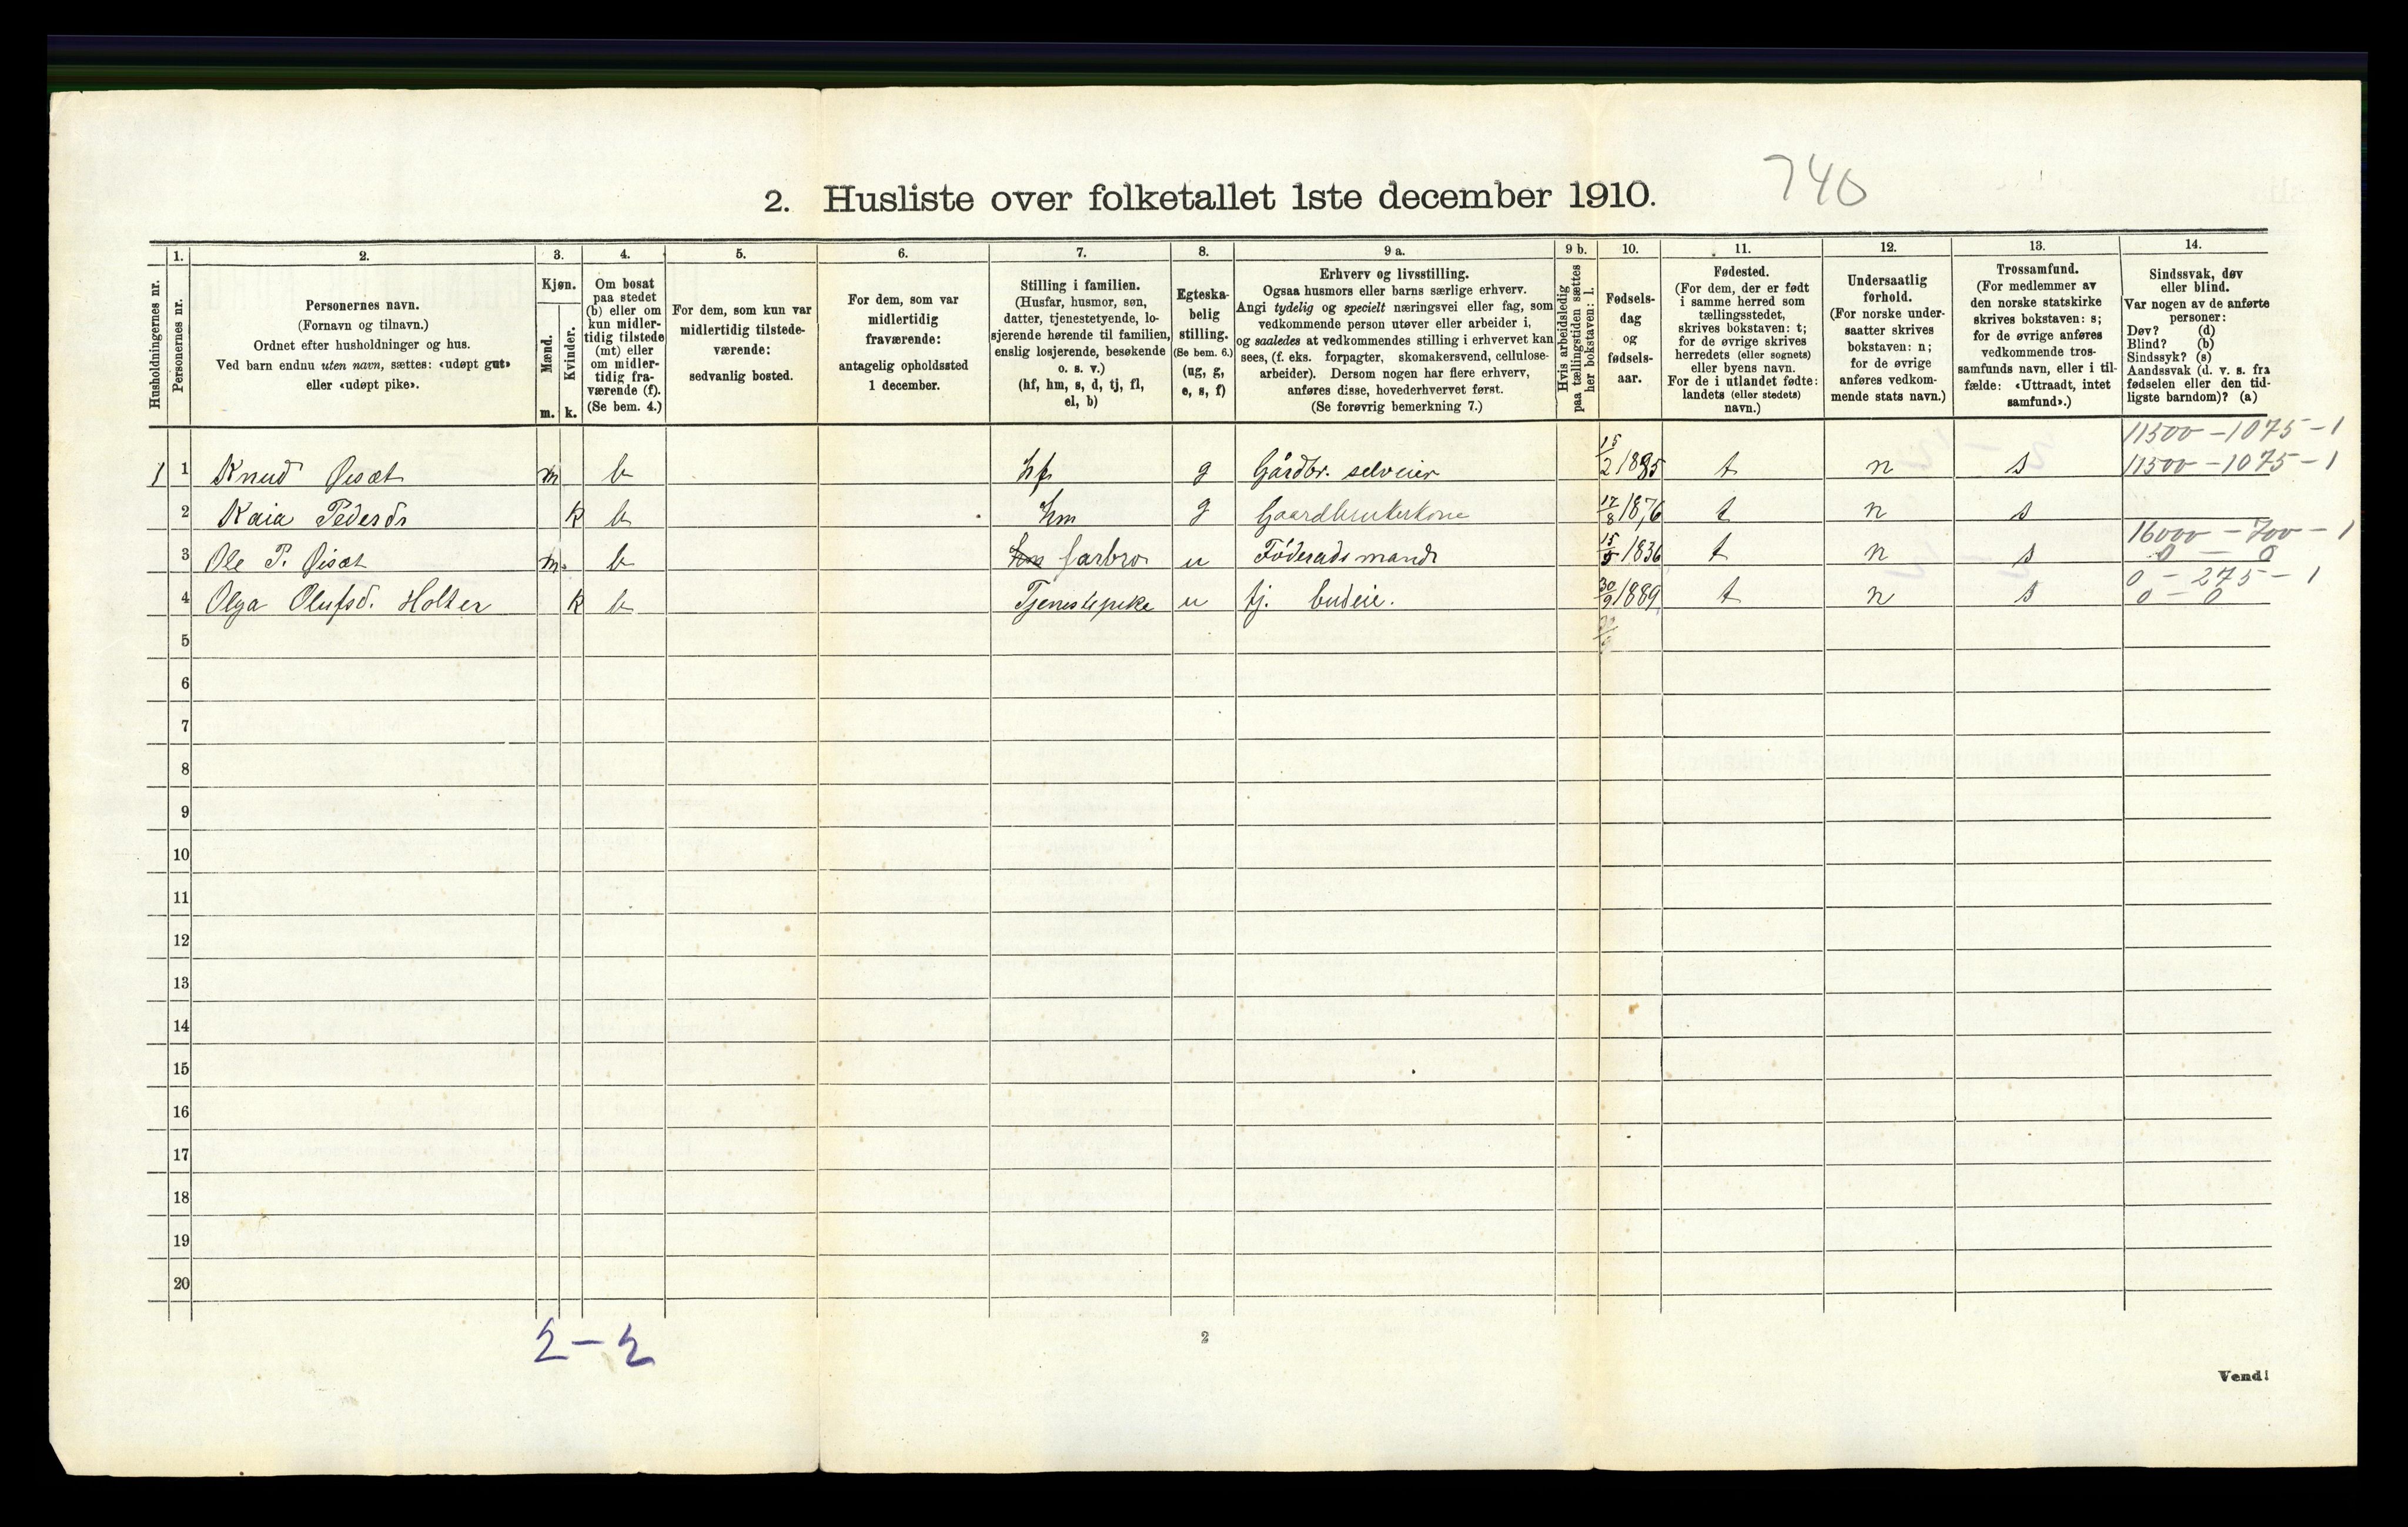 740
2. Husliste over folketallet 1ste december 1910.
1. 2. 3. 4. 5. 6. 7. 8. 9 a. 9 b. 10. 11. 12. 13. 14.
Husholdningernes nr.
Personernes nr.
Personernes navn.
(Fornavn og tilnavn.)
Ordnet efter husholdninger og hus.
Ved barn endnu uten navn, sættes: «udøpt gut»
eller «udøpt pike».
Kjøn.
Mænd.
Kvinder.
m. k.
Om bosat
paa stedet
(b) eller om
kun midler-
tidig tilstede
(mt) eller
om midler-
tidig fra-
værende (f).
(Se bem. 4.)
For dem, som kun var
midlertidig tilstede-
værende:
sedvanlig bosted.
For dem, som var
midlertidig
fraværende:
antagelig opholdssted
1 december.
Stilling i familien.
(Husfar, husmor, søn,
datter, tjenestetyende, lo-
sjerende hørende til familien,
enslig losjerende, besøkende
o. s. v.)
(hf, hm, s, d, tj, fl,
el, b)
Egteska-
belig
stilling.
(Se bem. 6.)
(ug, g,
e, s, f)
Erhverv og livsstilling.
Ogsaa husmors eller barns særlige erhverv.
Angi tydelig og specielt næringsvei eller fag, som
vedkommende person utøver eller arbeider i,
og saaledes at vedkommendes stilling i erhvervet kan
sees, (f. eks. forpagter, skomakersvend, cellulose-
arbeider). Dersom nogen har flere erhverv,
anføres disse, hovederhvervet først.
(Se forøvrig bemerkning 7.)
Hvis arbeidsledig
paa tællingstiden sættes
her bokstaven: l.
Fødsels-
dag
og
fødsels-
aar.
Fødested.
(For dem, der er født
i samme herred som
tællingsstedet,
skrives bokstaven: t;
for de øvrige skrives
herredets (eller sognets)
eller byens navn.
For de i utlandet fødte:
landets (eller stedets)
navn.)
Undersaatlig
forhold.
(For norske under-
saatter skrives
bokstaven: n;
for de øvrige
anføres vedkom-
mende stats navn.)
Trossamfund.
(For medlemmer av
den norske statskirke
skrives bokstaven: s;
for de øvrige anføres
vedkommende tros-
samfunds navn, eller i til-
fælde: «Uttraadt, intet
samfund».)
Sindssvak, døv
eller blind.
Var nogen av de anførte
personer:
Døv? (d)
Blind? (b)
Sindssyk? (s)
Aandssvak (d. v. s. fra
fødselen eller den tid-
ligste barndom)? (a)
11500 - 1075 - 1
1 1 Knud Øisæt m b hf g Gårdbr. selveier 15/2 1885 t n s 11500 - 1075 - 1
2 Kaia Pedersdr k b hm g Gaardbrukerkone 17/8 1876 t n s
16000 - 700 - 1
3 Ole P. Øisæt m. b hm farbro u Föderadsmand 15/5 1836 t n s 0 - 0
0 - 275 - 1
4 Olga Olufsd. Holter k b Tjenestepike u tj. budeie. 30/9 1889 t n s 0 - 0
5
6
7
8
9
10
11
12
13
14
15
16
17
18
19
20
2 - 2
2
Vend!